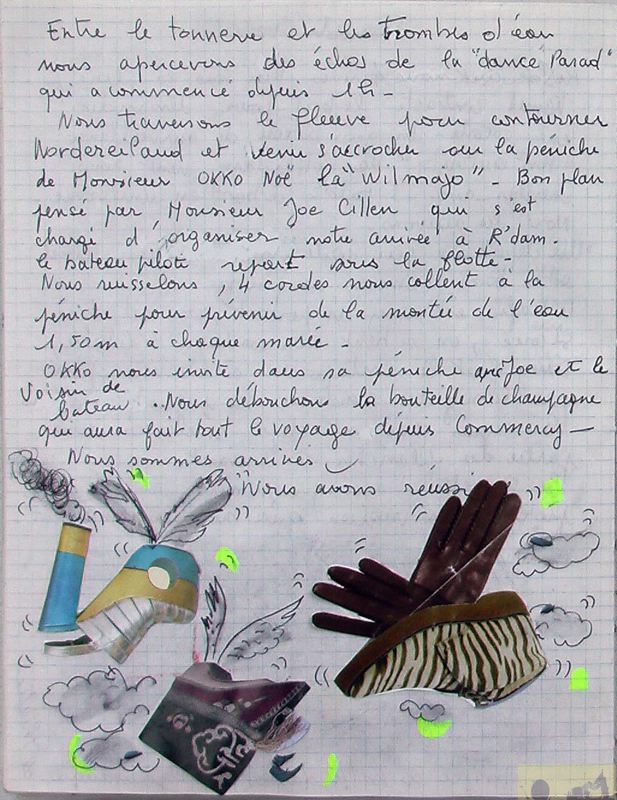 Entre le tonnerre et les trombes d'eau
nous apercevons des échos de la "dance Parad"
qui a commencé depuis 1h -
Nous traversons le fleuve pour contourner
Nordereiland et venir s'accrocher sur la péniche
de Monsieur OKKO Noë la "Wilmajo" - Bon plan
pensé par, Monsieur Joe Cillen qui s'est
chargé d'organiser notre arrivée à R'dam.
le bateau pilote repart sous la flotte -
Nous ruisselons, 4 cordes nous collent à la
péniche pour prévenir de la montée de l'eau
1,50m à chaque marée -
OKKO nous invite dans sa péniche avec Joe et le
voisin de
bateau. Nous débouchons la bouteille de champagne
qui aura fait tout le voyage depuis Commercy -
Nous sommes arrivés
Nous avons réussi